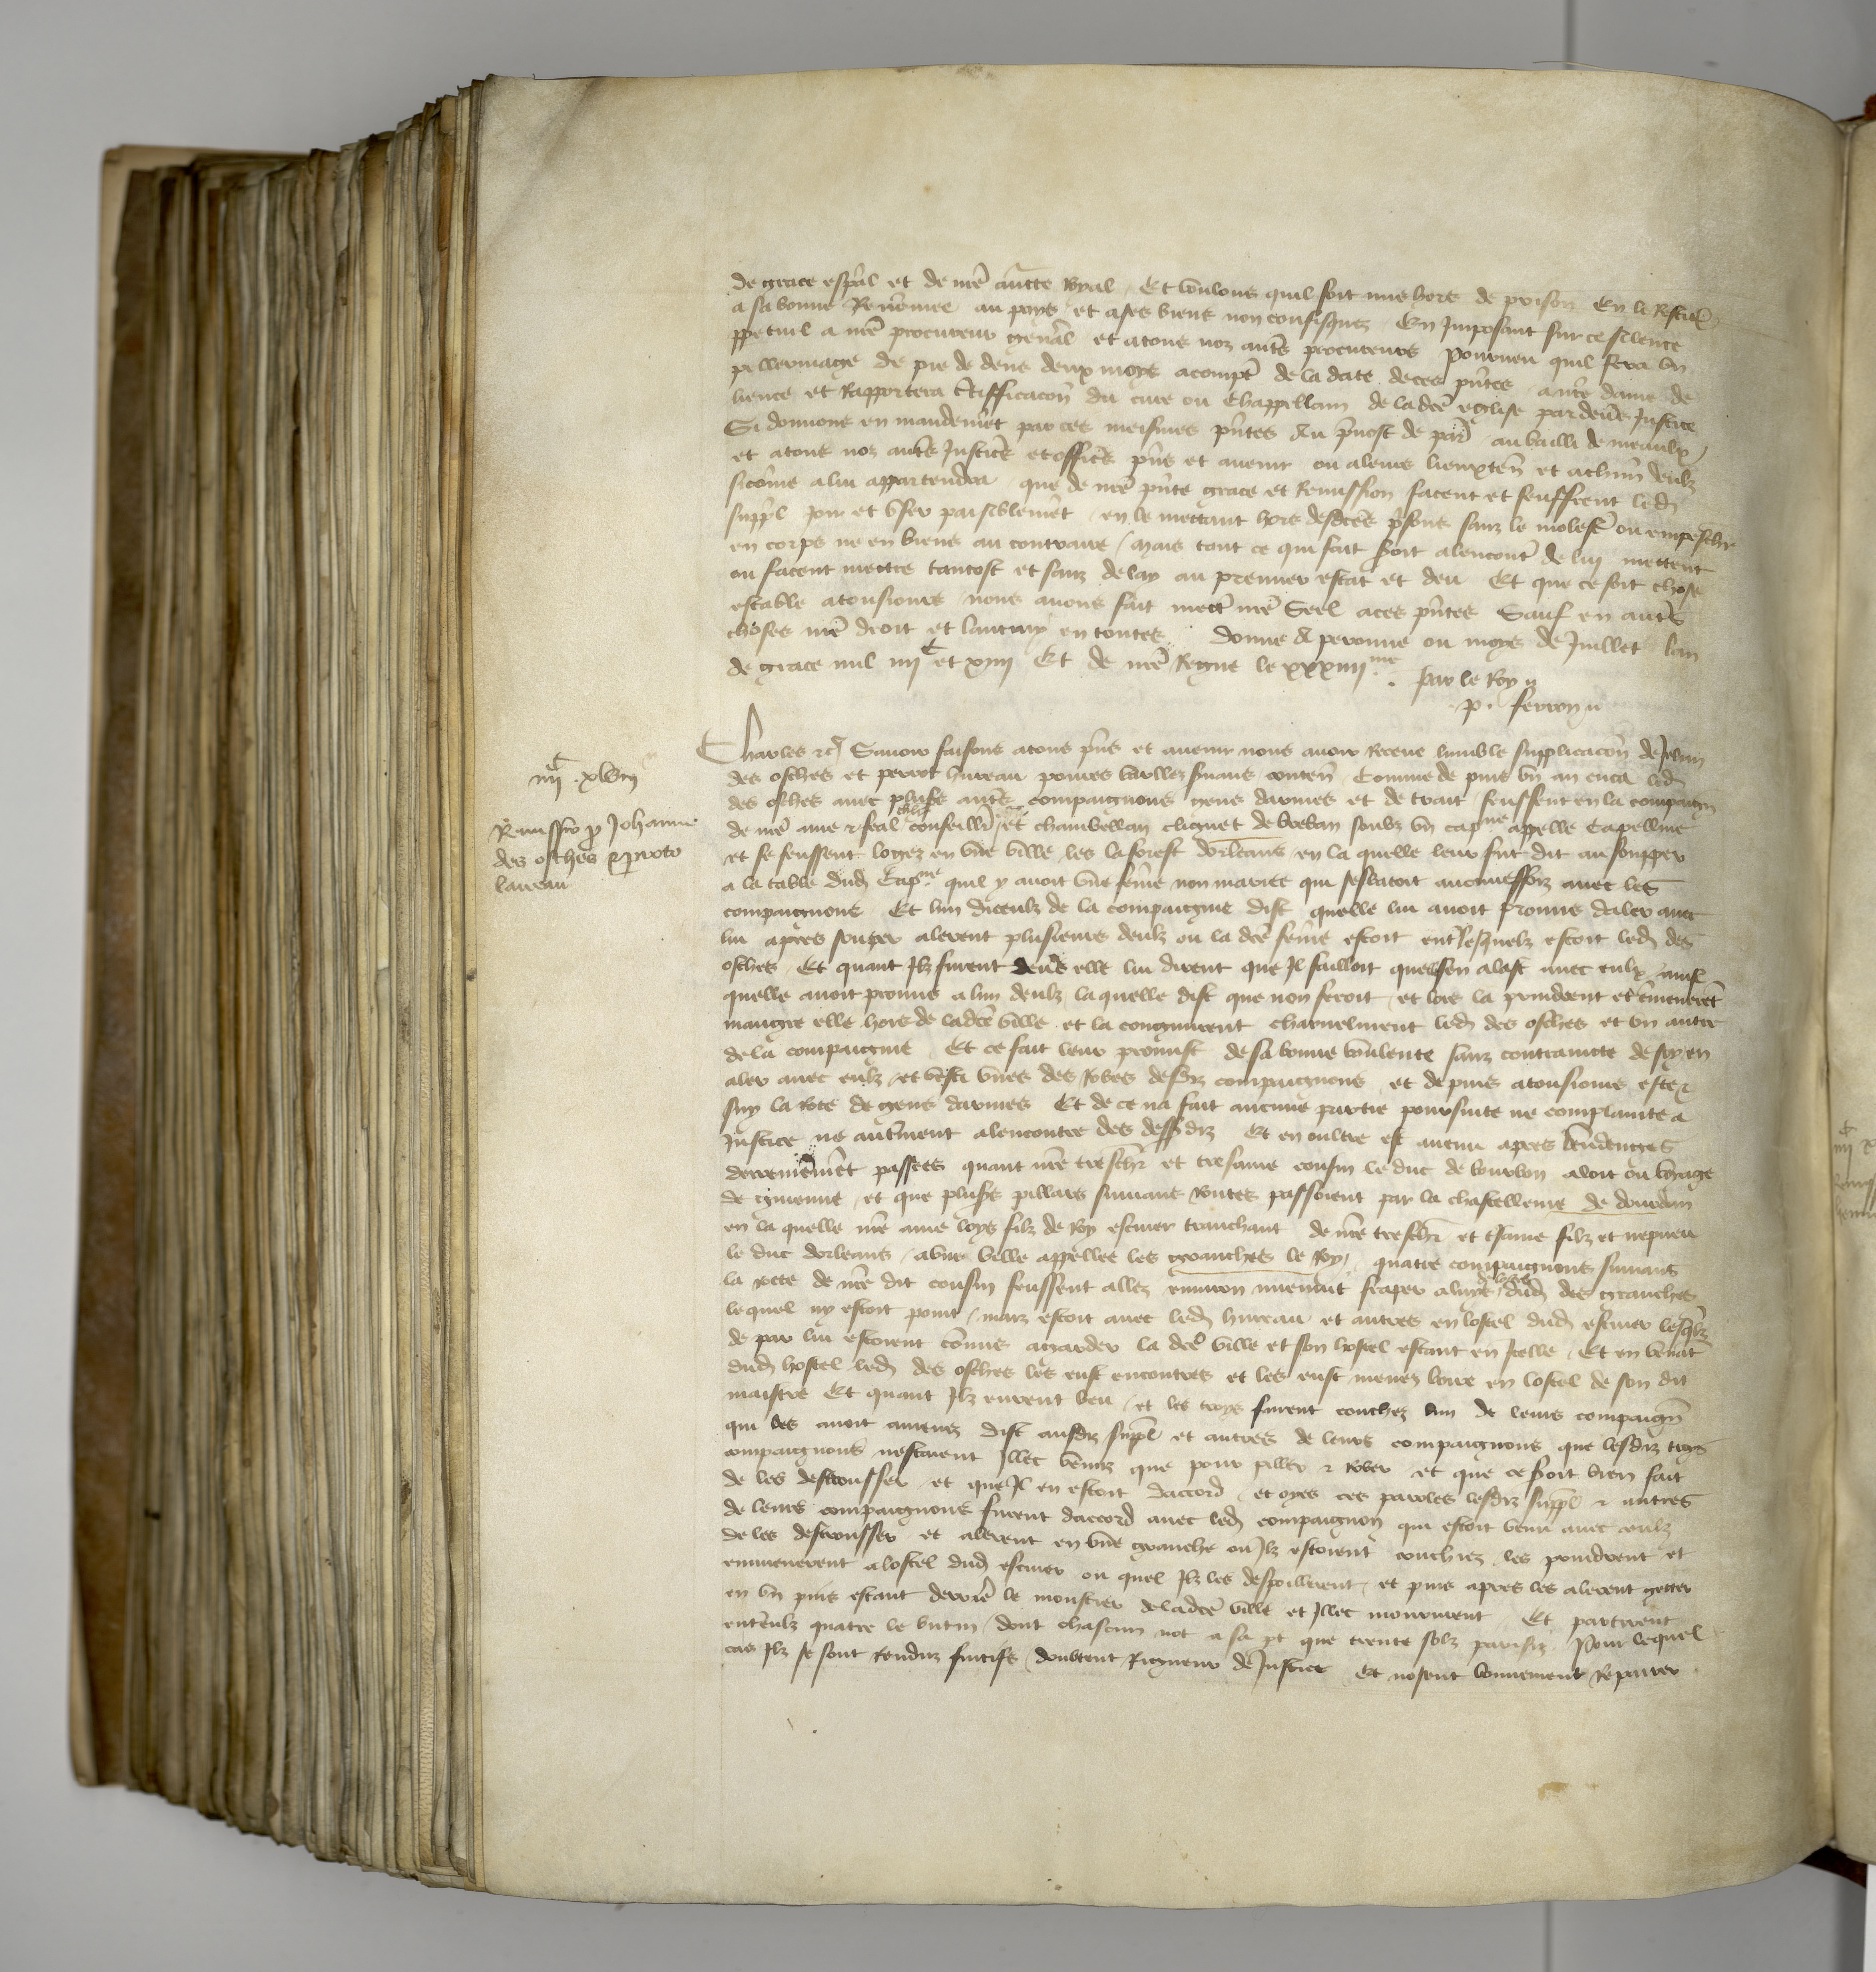 de grace esp̄al et de nr̄e auc̄te Royal Et voulons quil soit mis hors de prison En le Restit̄
a sa bonne Renōmee au pays et a ses biens non confisquez En Imposant sur ce silence
ppetuel a nr̄e procureur geneīal et a tous noz autr̄s procureurs Pourveu quil fera vn
pellerinage de pie dedens deux moys acompt̄ de la date de ces p̄ntes a nr̄e dame de
lience et Rapportera c̄tifficacōn du cure ou Chappellain de lad̄ce eglise par deūs Justice
Si donnons en mandem̄et par ces meismes p̄ntes Au p̄uost de par̄ au bailli de meaulx
et a tous noz autr̄s Justic̄s et offic̄s p̄ns et auenir ou a leurs lieuxten̄ et a ch̄un deulx
sicōme a lui appartendra que de nr̄e p̄nte grace et Remission facent et seuffrent led̄
suppl̄ Joir et vser paisiblem̄et en le mettant hors desd̄ces p̄sons sanz le molest̄ ou empescher
en corps ne en biens au contraire mais tout ce qui fait seroit alencont̄ de lui mettent
ou facent mettre tantost et sanz delay au premier estat et deu Et que ce soit chose
estable a tousiours nous auons fait mect̄ nr̄e Seel a ces p̄ntes Sauf en autr̄s
choses nr̄e droit et lautruy en toutes Donne A peronne ou moys de Juillet lan
de grace mil iiijC et xiiij Et de nr̄e Regne le xxxiiijme
Par le Roy
P. ferron
iiijC xviij
Remissio p Johanne
des osches & proto
laureau
Charles &c Sauoir faisons a tous p̄ns et auenir nous auoir Receue lumble supplicacōn de Jehan
des osches et perrot hureau poures varlez suians conten̄ Comme de puis vn an enca led̄
des osches auec plus̄s autr̄s compaignons gens darmes et de trait feussent en la compaign̄
de nr̄e ame & feal chl̄r conseill̄r et chambellan cliquet de breban soubz vn capne appelle Capelline
et se feussent logez en vne ville les la forest dorleans en la quelle leur fut dit au soupper
a la table dud̄ Capne quil y auoit vne fem̄e non mariee qui sesbatoit aucuneffoiz auec les
compaignons Et lun diceulx de la compaignie dist quelle lui auoit promis daler auec
lui apres souper alerent plusieurs deulx ou la d̄ce fem̄e estoit ent̄ lesquelz estoit led̄ des
osches Et quant Ilz furent deūs elle lui dirent que Il failloit quelle sen alast auec eulx ainsi
quelle auoit promis a lun deulx laquelle dist que non feroit et lors la prindrent et ēmenerēt
maugre elle hors de lad̄ce ville et la congnurent charnelment led̄ des osches et vn autre
de la compaignie Et ce fait leur promist de sa bonne voulente sanz contrainte de soy en
aler auec eulx et vesti vnes des Robes desd̄iz compaignons et depuis a tousiours este &
suy la Rote de gens darmes Et de ce na fait aucune partie poursuite ne complainte a
Justice ne autrement alencontre des dessd̄iz Et en oultre est auenu apres vendenges
derrenierem̄et passees quant nr̄e trescher̄ et tresame cousin le duc de bourbon aloit ou voiage
de guienne et que plus̄s pillars suiuans Routes passoient par la chastellenie de dourdan
en la quelle nr̄e ame loys filz de Roy escuier tranchant de nr̄e trescher̄ et tsame filz et nepueu
le duc dorleans a vne ville appellee les granches le Roy quatre compaignons suiuans
la rotte de nr̄e dit cousin feussent allez enuiron mienuit fraper a luys dud̄ des granches
lequel ny estoit point mais estoit auec led̄ hureau et autres en lostel dud̄ escuier lesq̄lz
de par lui estoient cōmis a garder la d̄ce ville et son hostel estant en Icelle Et en venāt
dud̄ hostel led̄ des osches les eust encontres et les eust menez boire en lostel de son dit
maistre Et quant Ilz eurent beu et les troys furent couchez lun de leurs compaign̄
qui les auoit amenez dist ausd̄iz suppl̄ et autres de leurs compaignons que lesd̄iz troys
compaignons nestoient Illec venuz que pour piller & rober et que ce seroit bien fait
de les destrousser et que Il en estoit daccord et oyes ces paroles lesd̄iz suppl̄ & autres
de leurs compaignons furent daccord auec led̄ compaignon qui estoit venu auec eulx
de les destrousser et alerent en vne granche ou Ilz estoient couchiez les prindrent et
emmenerent a lostel dud̄ escuier ou quel Ilz les despoillerent et puis apres les alerent getter
en vn puis estant derrier̄ le moustier de lad̄ce ville et Illec moururent Et partirent
ent̄eulz quatre le butin dont chascun not a sa pt que trente solz parisiz Pour lequel
cas Ilz se sont renduz fuitifs doubtent Rigueur de Justice Et nosent bonnement Repairer